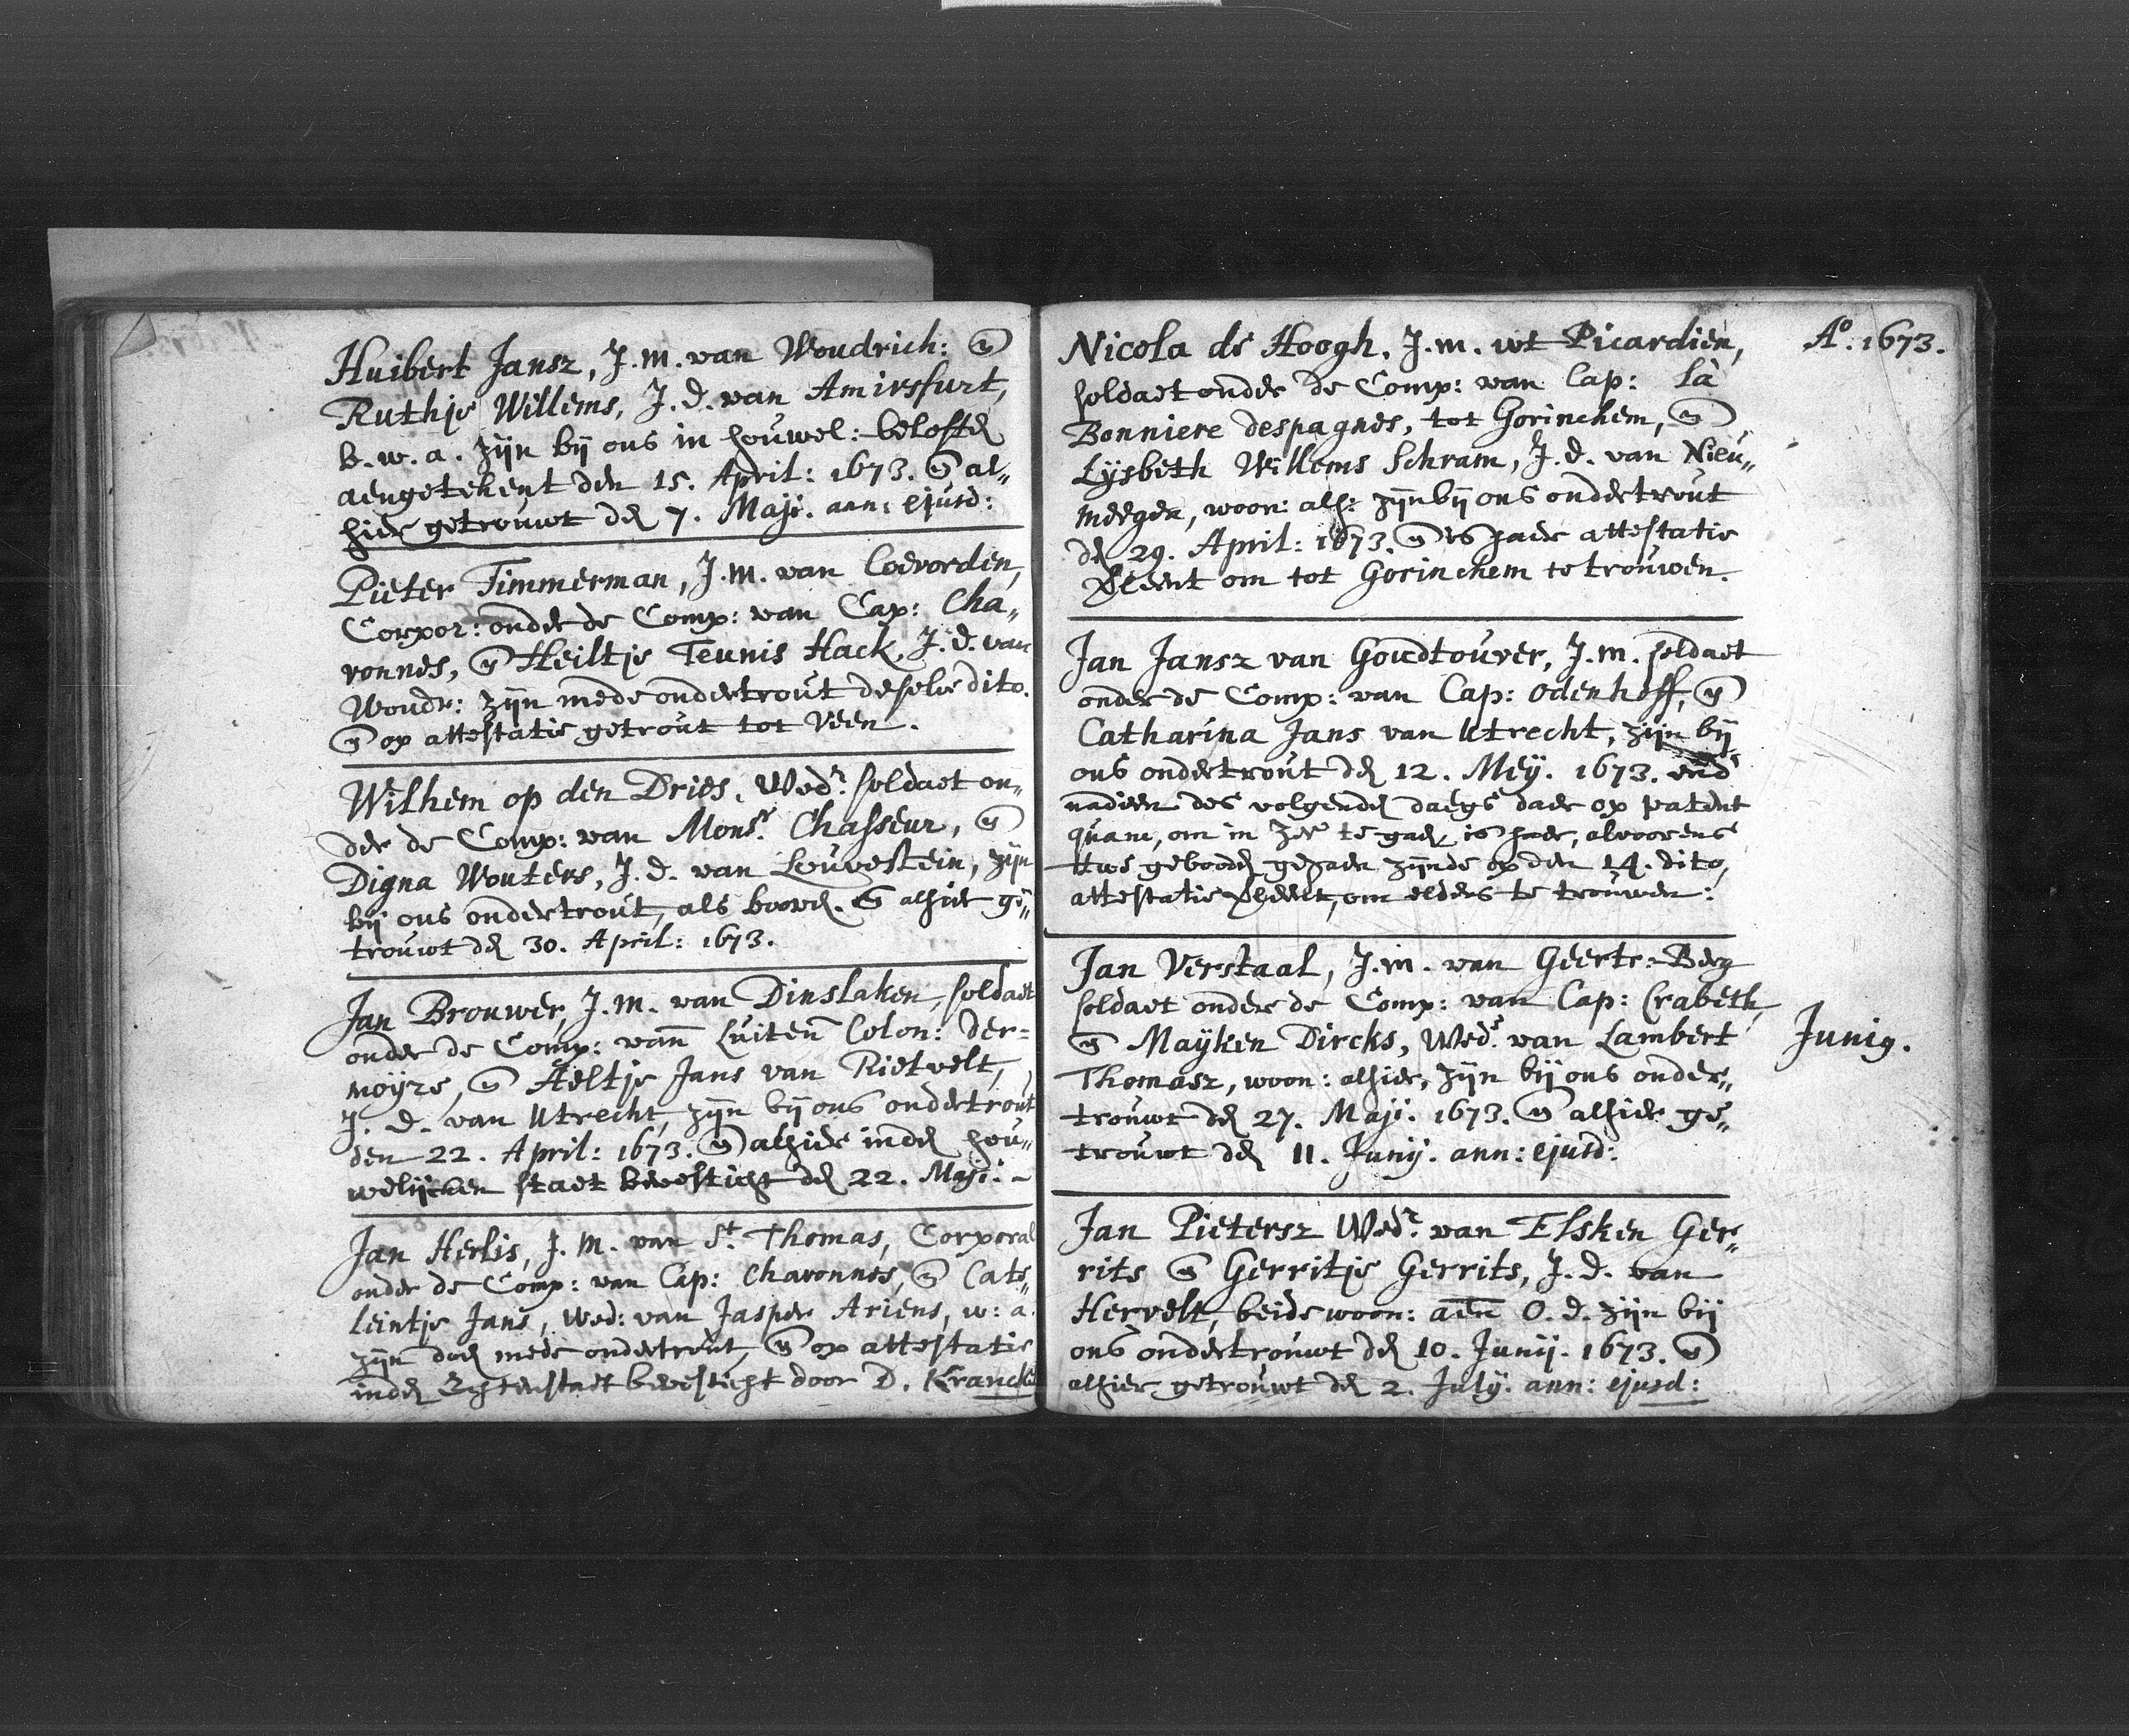 Huibert Jansz, J.M. van Woudrich: en
Ruthje Willems, J.d. van Amirsfurt,
b.w.a. zijn bij ons in houwel: beloften
aengetekent den 15. April: 1673. en al„
hier getrouwt den 7. Maji. ann: ejusd:
Pieter Timmerman, J.M. van Coevorden,
Corpor: onder de Comp: van Cap: Cha„
ronnes, en Heiltje Teunis Hack, J.d. van
Woudr: zijn mede ondertrout deselve dito.
en op attestatie getrout tot Veen.
Wilhem op den Dries, Wedr. soldaet on„
der de Comp: van Monsr. Chasseur, en
Digna Wouters, J.d. van Louvestein, zijn
bij ons ondertrout, als boven. en alhier ge„
trouwt den 30. April: 1673.
Jan Brouwer, J.M. van Dinslaken, soldaet
onder de Comp: vann Luitenn Colon: Der=
moyre, en Aeltje Jans van Rietvelt,
J.d. van Utrecht, zijn bij ons ondertrout
den 22. April: 1673. en alhier inden hou„
welijcken staet bevesticht den 22. Maji:
Jan Herlis, J.M. van St. Thomas, Corporal
onder de Comp: van Cap: Charonnes, en Cate„
leintje Jans, Wed: van Jasper Ariens, w:a.
zijn doen mede ondertrout, en op attestatie
inden Echtenstaet bevesticht door D.
Aº. 1673.
Nicola de Hoogh, J.m. wt Picardien,
soldaet onder de Comp: van Cap: La
Bonniere despagnes, tot Gorinchem, en
Lijsbeth Willems Schram, J.d. van Nieu„
meegen, woon: alh: zijn bij ons ondertrout
den 29. April: 1673. en is haer attestatie
verleent om tot Gorinchem te trouwen.
Jan Jansz van Goudtouver, J.m. soldaet
onder de Comp: van Cap: Odenhoff, en
Catharina Jans van Utrecht, zijn bij
ons ondertrout den 12. Meÿ. 1673. end
nadien des volgenden daegs daer op patent
quam, om in Zee te gaen, is haer, alvoorens
twe gebooden gegaen zijnde op den 14. dito,
attestatie verleent, om elders te trouwen:
Jan Verstaal, J.m. van Geertr:-Berg
soldaet onder de Comp: van Cap: Crabeth,
en Maÿken Dircks, Wede. van Lambert
Junij.
Thomasz, woon: alhier, zijn bij ons onder„
trouwt den 27. Maji. 1673. en alhier ge„
trouwt den 11. Junij. ann: ejusd:
Jan Pietersz Wedr. van Elsken Ger„
rits en Gerritje Gerrits, J.d. van
Hervelt, beide woon: aen O.d. zijn bij
ons ondertrouwt den 10. Junij. 1673. en
alhier getrouwt den 2. Julij. ann: ejusd: